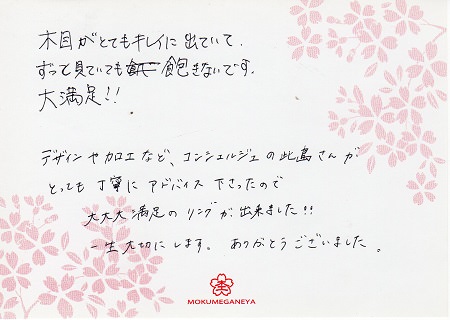 木目がとてもキレイに出ていて、
ずっと見ていても飽きないです。
大満足!!
デザインや加工など、コンシェルジュの北島さんが
とっても丁寧にアドバイス下さったので
大大大満足のリングが出来ました!!
一生大切にします。ありがとうございました。
MOKUMEGANEYA